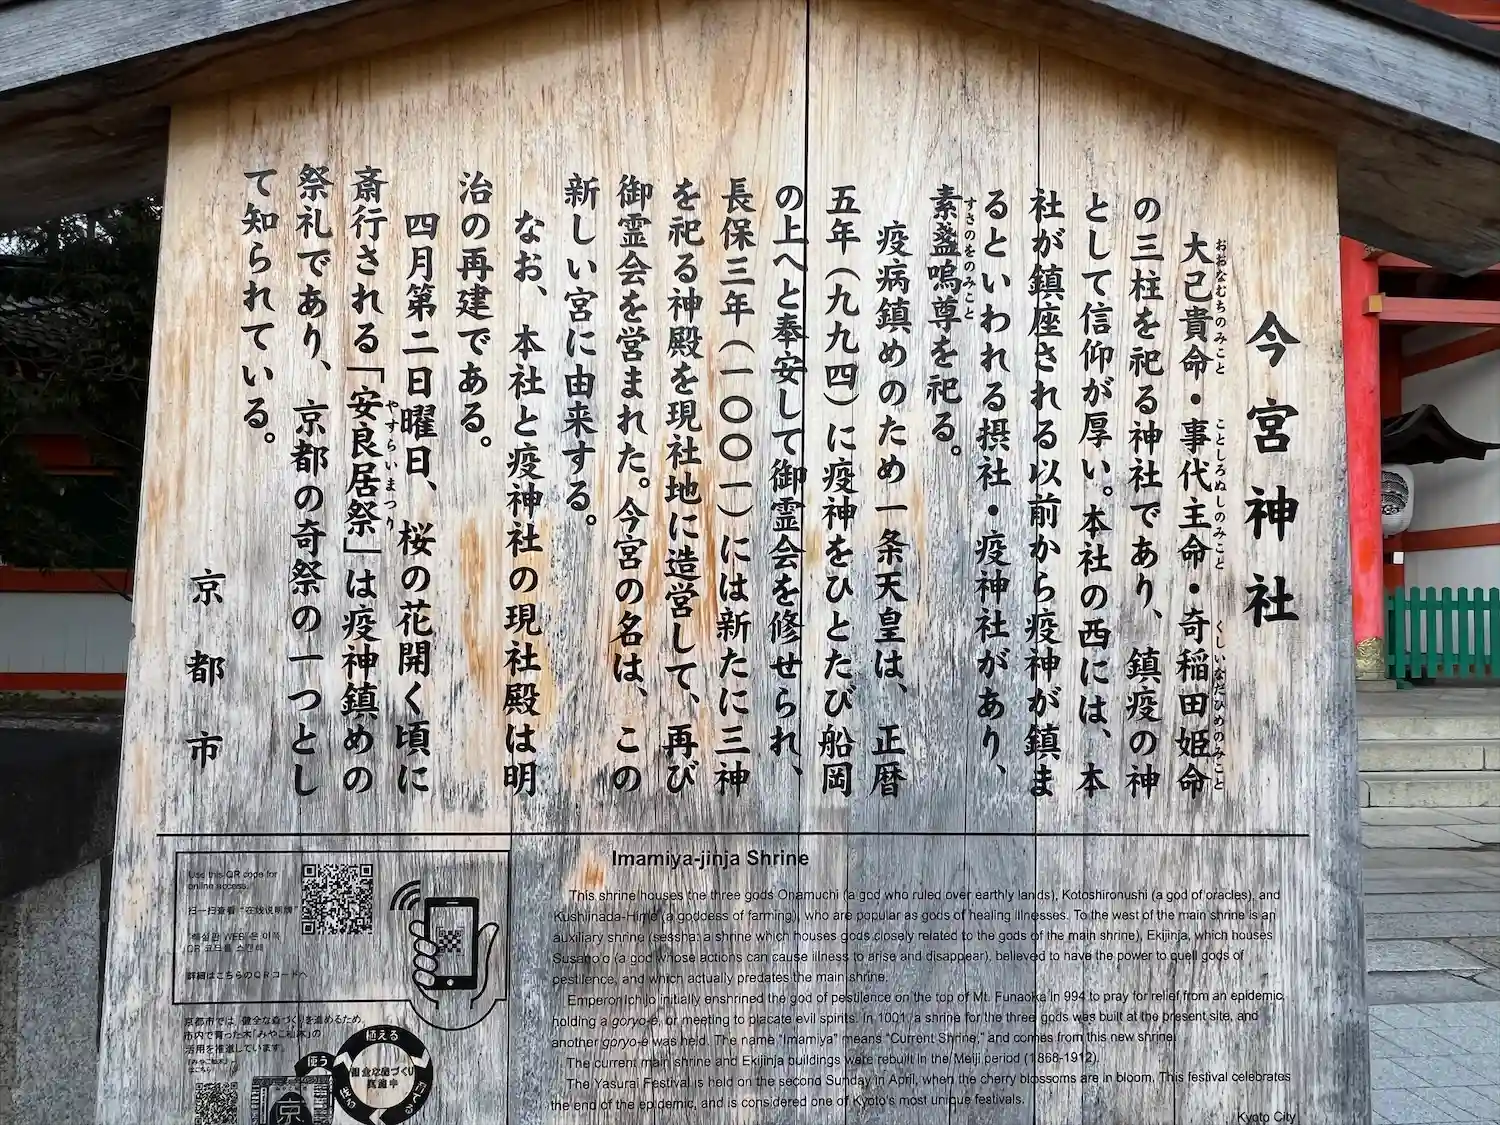 今宮神社
大己貴命・事代主命・奇稲田姫命
おおなむちのみこと ことしろぬしのみこと くしいなだひめのみこと
の三柱を祀る神社であり、鎮疫の神
として信仰が厚い。本社の西には、本
社が鎮座される以前から疫神が鎮ま
るといわれる摂社・疫神社があり、
素盞嗚尊を祀る。
すさのをのみこと
疫病鎮めのため一条天皇は、正暦
五年（九九四）に疫神をひとたび船岡
の上へと奉安して御霊会を修せられ、
長保三年（一〇〇一）には新たに三神
を祀る神殿を現社地に造営して、再び
御霊会を営まれた。今宮の名は、この
新しい宮に由来する。
なお、本社と疫神社の現社殿は明
治の再建である。
四月第二日曜日、桜の花開く頃に
斎行される「安良居祭」は疫神鎮めの
やすらいまつり
祭礼であり、京都の奇祭の一つとし
て知られている。
京都市
Imamiya-jinja Shrine
This shrine houses the three gods Onamuchi (a god who ruled over earthly lands), Kotoshironushi (a god of oracles), and
Kushiinada-Hime (a goddess of farming), who are popular as gods of healing illnesses. To the west of the main shrine is an
auxiliary shrine (sessha: a shrine which houses gods closely related to the gods of the main shrine), Ekijinja, which houses
Susano'o (a god whose actions can cause illness to arise and disappear), believed to have the power to quell gods of
pestilence, and which actually predates the main shrine.
Emperor Ichijo initially enshrined the god of pestilence on the top of Mt. Funaoka in 994 to pray for relief from an epidemic,
holding a goryo-e, or meeting to placate evil spirits. In 1001, a shrine for the three gods was built at the present site, and
another goryo-e was held. The name "Imamiya" means "Current Shrine," and comes from this new shrine.
The current main shrine and Ekijinja buildings were rebuilt in the Meiji period (1868-1912).
The Yasurai Festival is held on the second Sunday in April, when the cherry blossoms are in bloom. This festival celebrates
the end of the epidemic, and is considered one of Kyoto's most unique festivals.
Kyoto City
Use this QR code for
online access.
扫一扫查看"在线说明牌"
"해설판 WEB"은 이쪽
QR 코드를 스캔해
詳細はこちらのQRコードへ
京都市では、健全な森づくりを進めるため、
市内で育った木「みやこ杣木」の
活用を推進しています。
「みやこ杣木」
はこちら
植える
使う
京